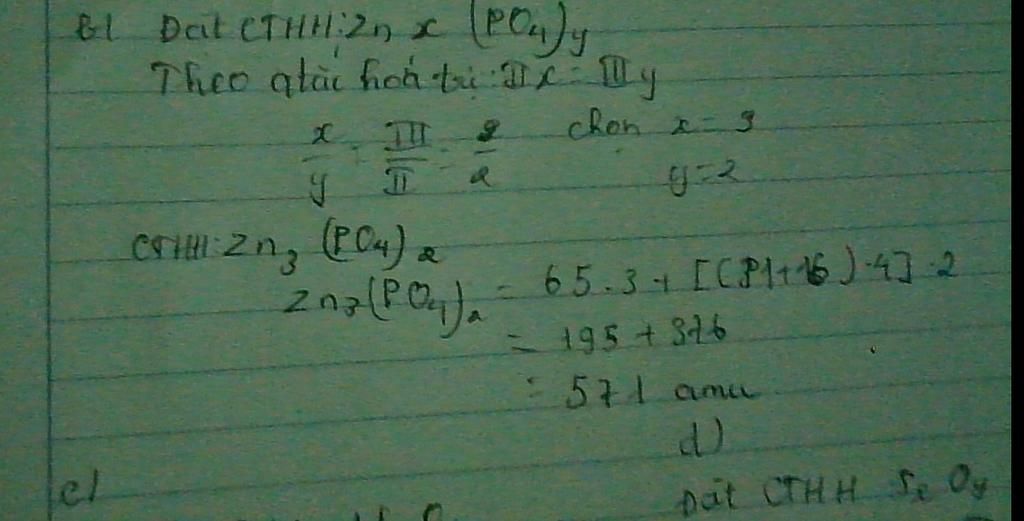 b) Đặt CTHH: Zn x (PO4)y
Theo qtắc hoá trị: II x = III y
x/y = III/II = 3/2 chọn x = 3
y = 2
CTHH: Zn3 (PO4)2
Zn3(PO4)2 = 65.3 + [(31+16).4].2
= 195 + 376
= 571 amu
d)
c)
Đặt CTHH Sx Oy